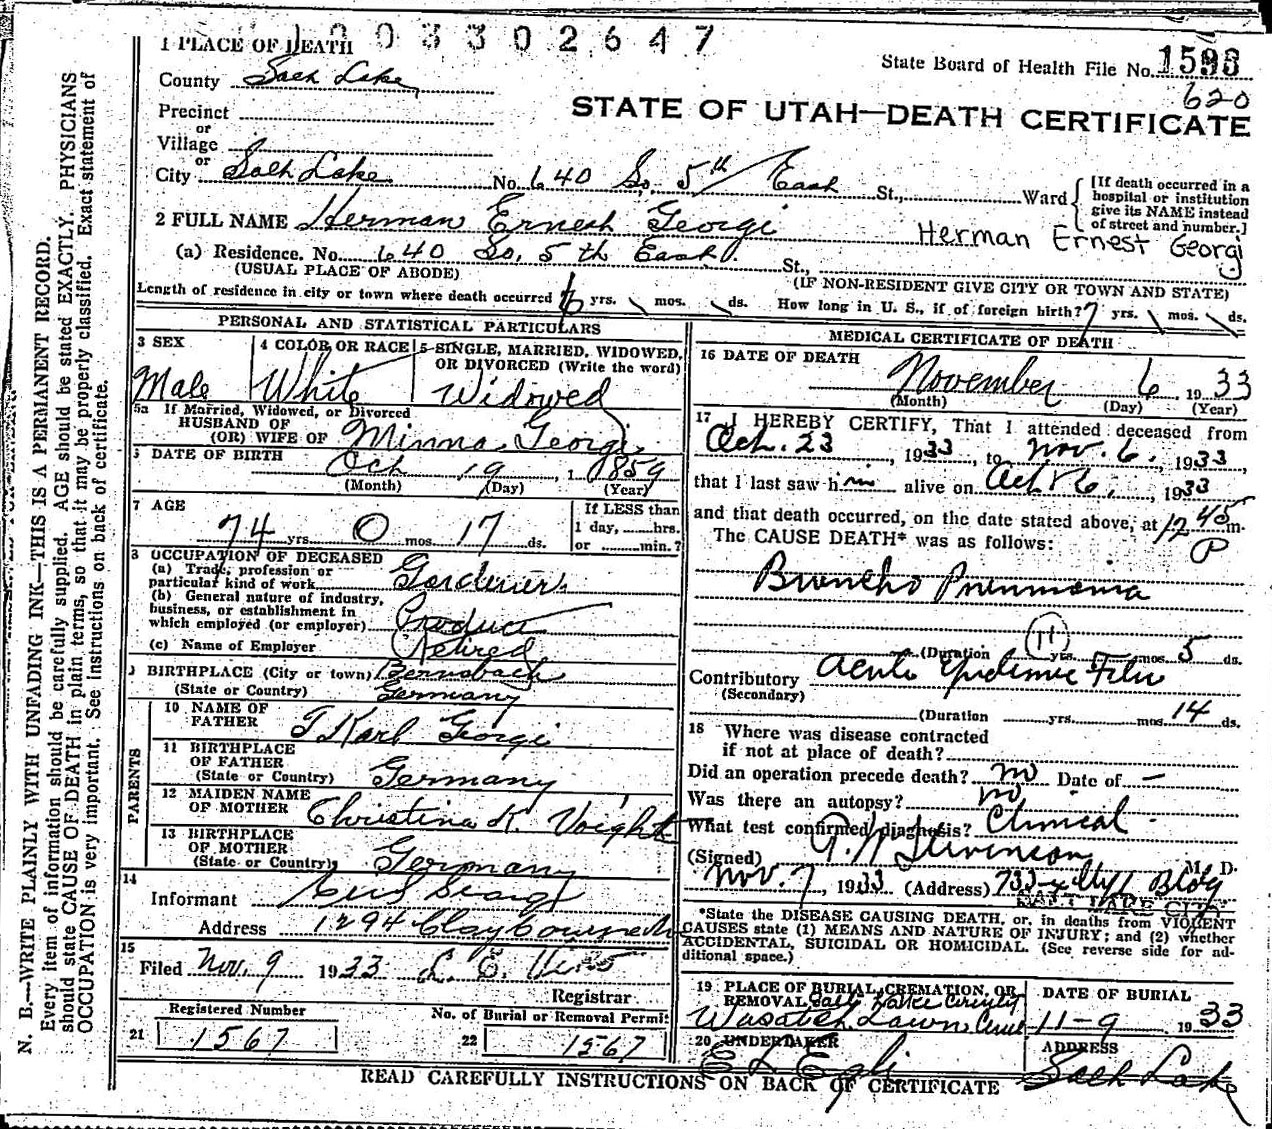 1003302647
1 PLACE OF DEATH
State Board of Health File No. 1593
620
County Salt Lake
STATE OF UTAH—DEATH CERTIFICATE
Precinct
or
Village
or
City Salt Lake No. 640 So. 5th East St., Ward
[If death occurred in a
hospital or institution
give its NAME instead
of street and number.]
2 FULL NAME Herman Ernest Georgi
Herman Ernest Georgi
(a) Residence. No. 640 So. 5th East St.,
(USUAL PLACE OF ABODE) (IF NON-RESIDENT GIVE CITY OR TOWN AND STATE)
Length of residence in city or town where death occurred yrs. mos. ds. How long in U. S., if of foreign birth? 7 yrs. mos. ds.
PERSONAL AND STATISTICAL PARTICULARS
3 SEX
Male
4 COLOR OR RACE
White
5 SINGLE, MARRIED, WIDOWED,
OR DIVORCED (Write the word)
Widowed
5a If Married, Widowed, or Divorced
HUSBAND OF
(OR) WIFE OF Minna Georgi
6 DATE OF BIRTH Oct 19, 1859
(Month) (Day) (Year)
7 AGE
74 yrs. 0 mos. 17 ds.
If LESS than
1 day, hrs.
or min.?
8 OCCUPATION OF DECEASED
(a) Trade, profession or
particular kind of work Gardener
(b) General nature of industry,
business, or establishment in
which employed (or employer) Product
(c) Name of Employer Retired
9 BIRTHPLACE (City or town) Bernsbach
(State or Country) Germany
PARENTS
10 NAME OF
FATHER Karl Georgi
11 BIRTHPLACE
OF FATHER
(State or Country) Germany
12 MAIDEN NAME
OF MOTHER Christina K. Voight
13 BIRTHPLACE
OF MOTHER
(State or Country) Germany
14
Informant Georgi
Address 1294
15
Filed Nov. 9 1933 L. E.
Registrar
Registered Number
21 1567
No. of Burial or Removal Permit
22 1567
MEDICAL CERTIFICATE OF DEATH
16 DATE OF DEATH
November 6 1933
(Month) (Day) (Year)
17 I HEREBY CERTIFY, That I attended deceased from
Oct. 23, 1933, to Nov. 6, 1933,
that I last saw him alive on 6, 1933
and that death occurred, on the date stated above, at 12 45 m.
P
The CAUSE DEATH* was as follows:
Broncho Pneumonia
11
(Duration yrs. mos. 5 ds.
Contributory Acute Epidemic Flu
(Secondary)
(Duration yrs. mos. 14 ds.
18 Where was disease contracted
if not at place of death?
Did an operation precede death? no Date of —
Was there an autopsy? no
What test confirmed diagnosis? Clinical
(Signed) G. W. Stevenson M. D.
Nov. 7, 1933 (Address) 733 Bldg
SALT LAKE CITY
*State the DISEASE CAUSING DEATH, or, in deaths from VIOLENT
CAUSES state (1) MEANS AND NATURE OF INJURY; and (2) whether
ACCIDENTAL, SUICIDAL OR HOMICIDAL. (See reverse side for ad-
ditional space.)
19 PLACE OF BURIAL, CREMATION, OR
REMOVAL Salt Lake County
Wasatch Lawn Cem
DATE OF BURIAL
11-9 1933
20 UNDERTAKER
E L Egli
ADDRESS
Salt Lake
READ CAREFULLY INSTRUCTIONS ON BACK OF CERTIFICATE
N. B.—WRITE PLAINLY WITH UNFADING INK—THIS IS A PERMANENT RECORD.
Every item of information should be carefully supplied. AGE should be stated EXACTLY. PHYSICIANS
should state CAUSE OF DEATH in plain terms, so that it may be properly classified. Exact statement of
OCCUPATION is very important. See Instructions on back of certificate.